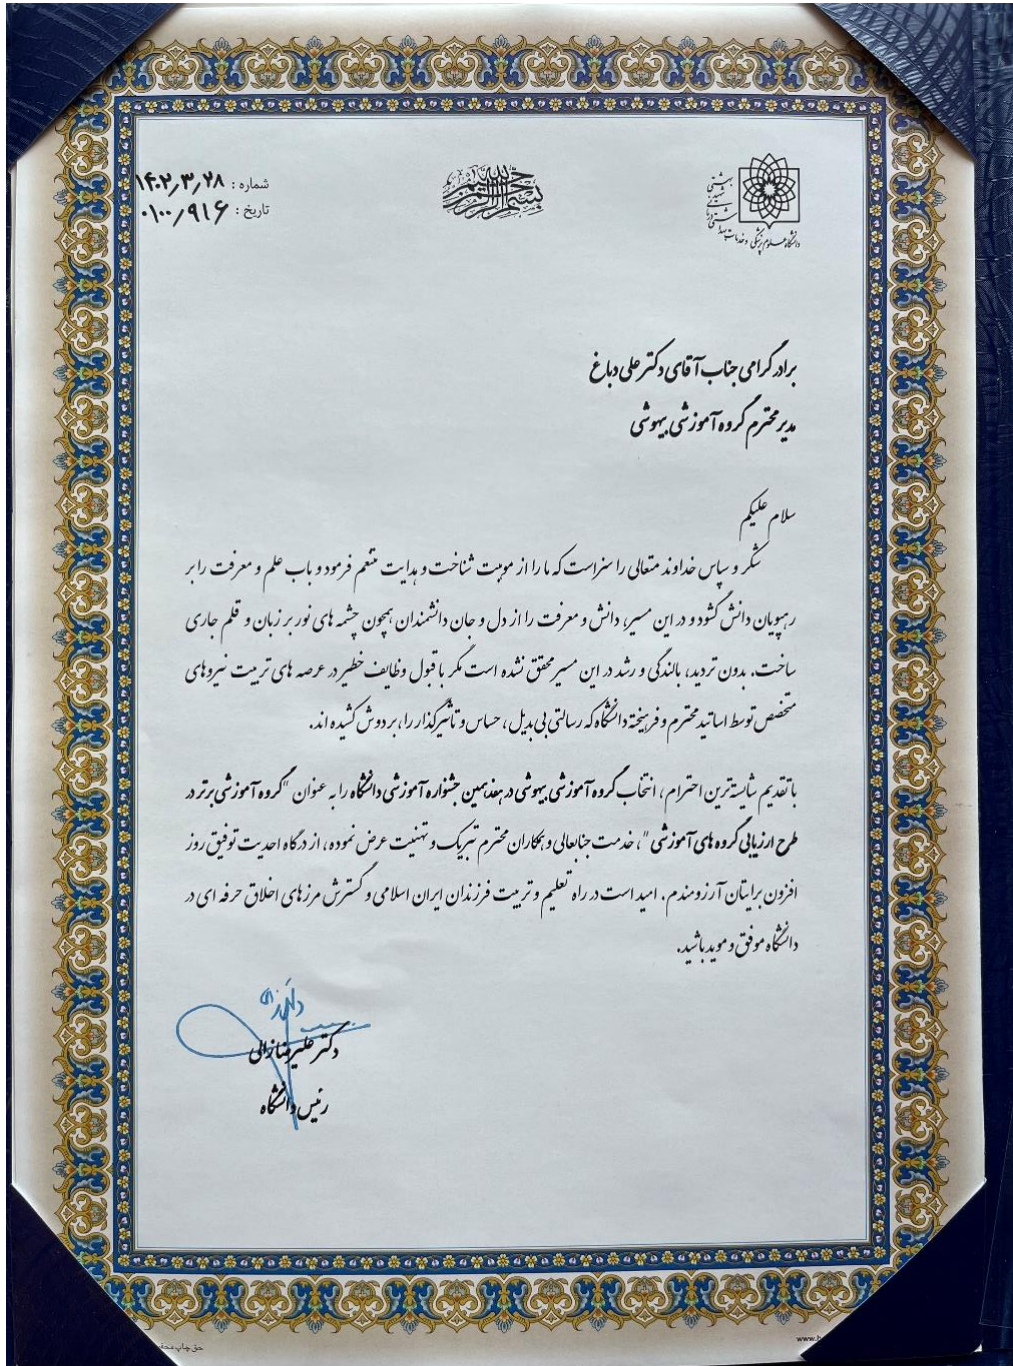 بسم الله الرحمن الرحیم
شماره : ۱۴۰۲٫۳٫۲۸
تاریخ : ۰۱۰۰٫۹۱۶
دانشگاه علوم پزشکی و خدمات بهداشتی درمانی شهید بهشتی
برادر گرامی جناب آقای دکتر علی دباغ
مدیر محترم گروه آموزشی بیهوشی
سلام علیکم
شکر و سپاس خداوند متعالی را سزاست که ما را از موهبت شناخت و هدایت متنعم فرمود و باب علم و معرفت را بر
رهپویان دانش گشود و در این مسیر، دانش و معرفت را از دل و جان دانشمندان همچون چشمه های نور بر زبان و قلم جاری
ساخت. بدون تردید، بالندگی و رشد در این مسیر محقق نشده است مگر با قبول وظایف خطیر در عرصه های تربیت نیروهای
متخصص توسط اساتید محترم و فرهیخته دانشگاه که رسالتی بی بدیل، حساس و تأثیرگذار را، بر دوش کشیده اند.
با تقدیم شایسته ترین احترام، انتخاب گروه آموزشی بیهوشی در هفدهمین جشنواره آموزشی دانشگاه را به عنوان "گروه آموزشی برتر در
طرح ارزیابی گروه های آموزشی"، خدمت جنابعالی و همکاران محترم تبریک و تهنیت عرض نموده، از درگاه احدیت توفیق روز
افزون برایتان آرزومندم. امید است در راه تعلیم و تربیت فرزندان ایران اسلامی و گسترش مرزهای اخلاق حرفه ای در
دانشگاه موفق و موید باشید.
دکتر علیرضا زالی
رئیس دانشگاه
حق چاپ
www.